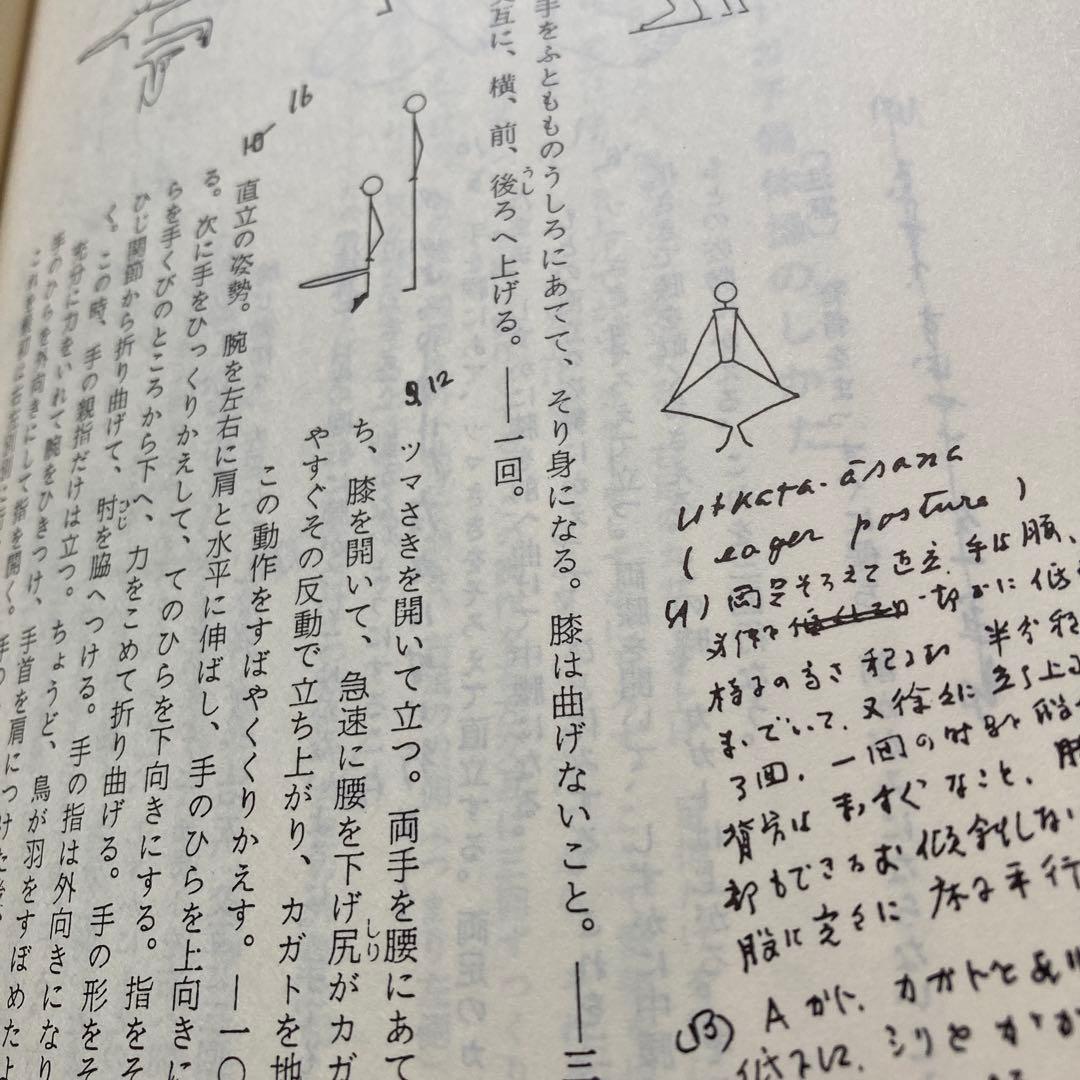 手をふともものうしろにあてて、そり身になる。膝は曲げないこと。――三
互に、横、前、後ろへ上げる。――一回。
うし
9 12
ツマさきを開いて立つ。両手を腰にあて
ち、膝を開いて、急速に腰を下げ尻がカガ
しり
やすぐその反動で立ち上がり、カガトを地
この動作をすばやくくりかえす。――一〇
10 16
直立の姿勢。腕を左右に肩と水平に伸ばし、手のひらを上向きに
る。次に手をひっくりかえして、てのひらを下向きにする。指をそ
らを手くびのところから下へ、力をこめて折り曲げる。手の形をそ
ひじ関節から折り曲げて、肘を脇へつける。手の指は外向きになり
ひじ
く。この時、手の親指だけは立つ。ちょうど、鳥が羽をすぼめたよ
充分に力をいれて腕をひきつけ、手首を肩につけた後
手のひらを外向きにして指を開く。
utkata-āsana
(eager posture)
(A) 両足そろえて直立、手は腰、
椅子の高さ
までいて、又徐々に立ち上る
3回、一回の時
背骨はまっすぐなこと、
部もできる 傾斜しない
股は完全に床と平行
(B) A カガトと